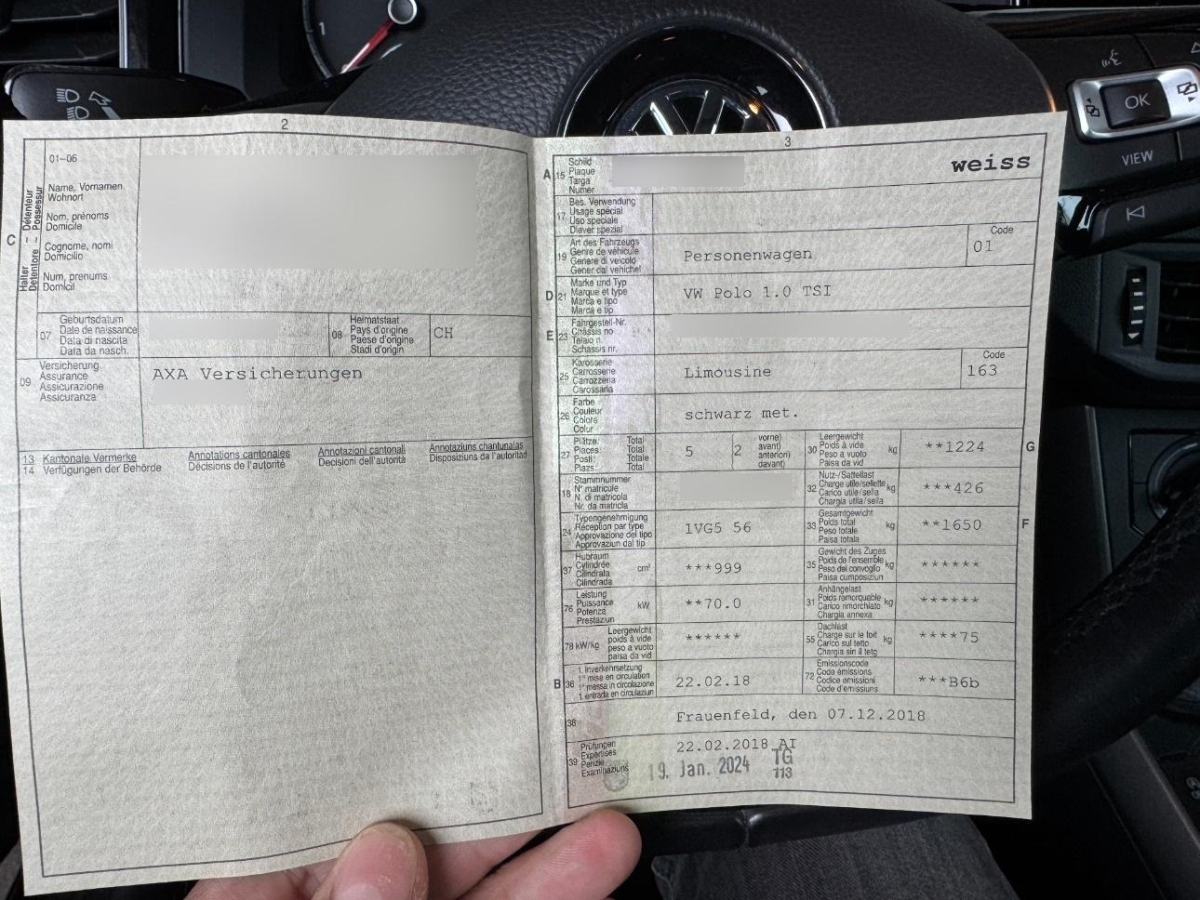 OK
VIEW
2
C
Halter – Détenteur
Detentore – Possessur
01–06
Name, Vornamen
Wohnort
Nom, prénoms
Domicile
Cognome, nomi
Domicilio
Num, prenums
Domicil
07
Geburtsdatum
Date de naissance
Data di nascita
Data da nasch.
08
Heimatstaat
Pays d'origine
Paese d'origine
Stadi d'origin
CH
09
Versicherung
Assurance
Assicurazione
Assicuranza
AXA Versicherungen
13 Kantonale Vermerke
14 Verfügungen der Behörde
Annotations cantonales
Décisions de l'autorité
Annotazioni cantonali
Decisioni dell'autorità
Annotaziuns chantunalas
Disposiziuns da l'autoritad
3
A
15
Schild
Plaque
Targa
Numer
weiss
17
Bes. Verwendung
Usage spécial
Uso speciale
Diever spezial
19
Art des Fahrzeugs
Genre de véhicule
Genere di veicolo
Gener dal vehichel
Personenwagen
Code
01
D
21
Marke und Typ
Marque et type
Marca e tipo
Marca e tip
VW Polo 1.0 TSI
E
23
Fahrgestell-Nr.
Châssis no
Telaio n.
Schassis nr.
25
Karosserie
Carrosserie
Carrozzeria
Carossaria
Limousine
Code
163
26
Farbe
Couleur
Colore
Colur
schwarz met.
27
Plätze: Total
Places: Total
Posti: Totale
Plazs: Total
5
2
vorne)
avant)
anteriori)
davant)
30
Leergewicht
Poids à vide
Peso a vuoto
Paisa da vid
kg
**1224
G
18
Stammnummer
N° matricule
N. di matricola
Nr. da matricla
32
Nutz-/Sattellast
Charge utile/sellette
Carico utile/sella
Chargia utila/sella
kg
***426
24
Typengenehmigung
Réception par type
Approvazione del tipo
Approvaziun dal tip
1VG5 56
33
Gesamtgewicht
Poids total
Peso totale
Paisa totala
kg
**1650
F
37
Hubraum
Cylindrée
Cilindrata
Cilindrada
cm³
***999
35
Gewicht des Zuges
Poids de l'ensemble
Peso del convoglio
Paisa cumposiziun
kg
******
76
Leistung
Puissance
Potenza
Prestaziun
kW
**70.0
31
Anhängelast
Poids remorquable
Carico rimorchiato
Chargia annexa
kg
******
78 kW/kg
Leergewicht
poids à vide
peso a vuoto
paisa da vid
******
55
Dachlast
Charge sur le toit
Carico sul tetto
Chargia sin il tetg
kg
****75
B
36
1. Inverkehrsetzung
1re mise en circulation
1a messa in circolazione
1. entrada en circulaziun
22.02.18
72
Emissionscode
Code émissions
Codice emissioni
Code d'emissiuns
***B6b
38
Frauenfeld, den 07.12.2018
39
Prüfungen
Expertises
Perizie
Examinaziuns
22.02.2018 AI
19. Jan. 2024
TG
113